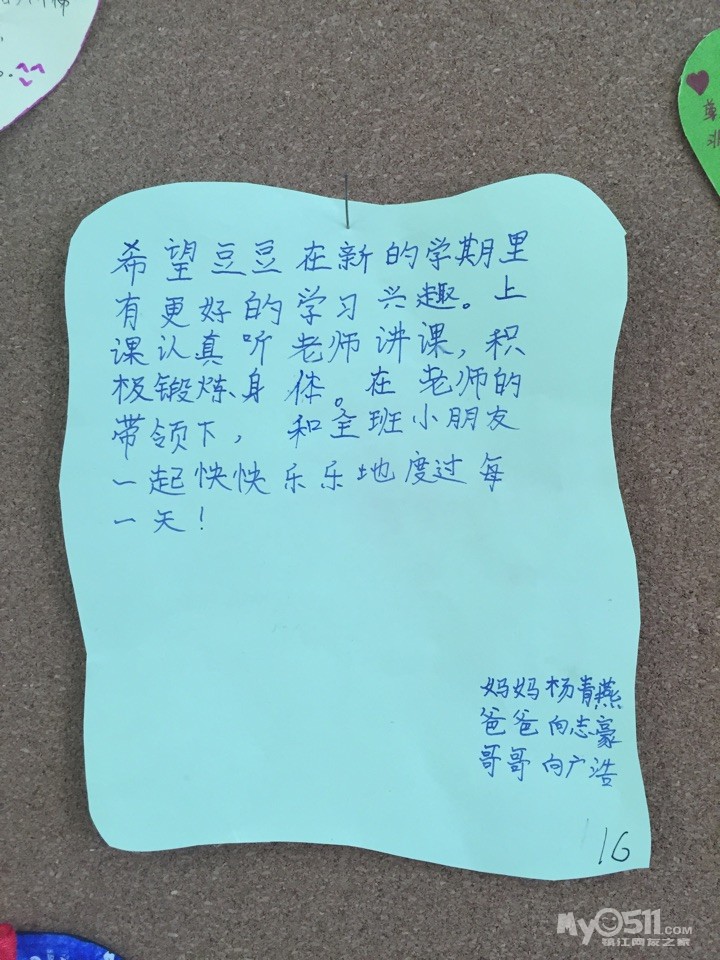 希望豆豆在新的学期里
有更好的学习兴趣。上
课认真听老师讲课，积
极锻炼身体。在老师的
带领下，和全班小朋友
一起快快乐乐地度过每
一天！
妈妈杨青燕
爸爸向志豪
哥哥向广浩
16
My0511.COM
镇江网友之家